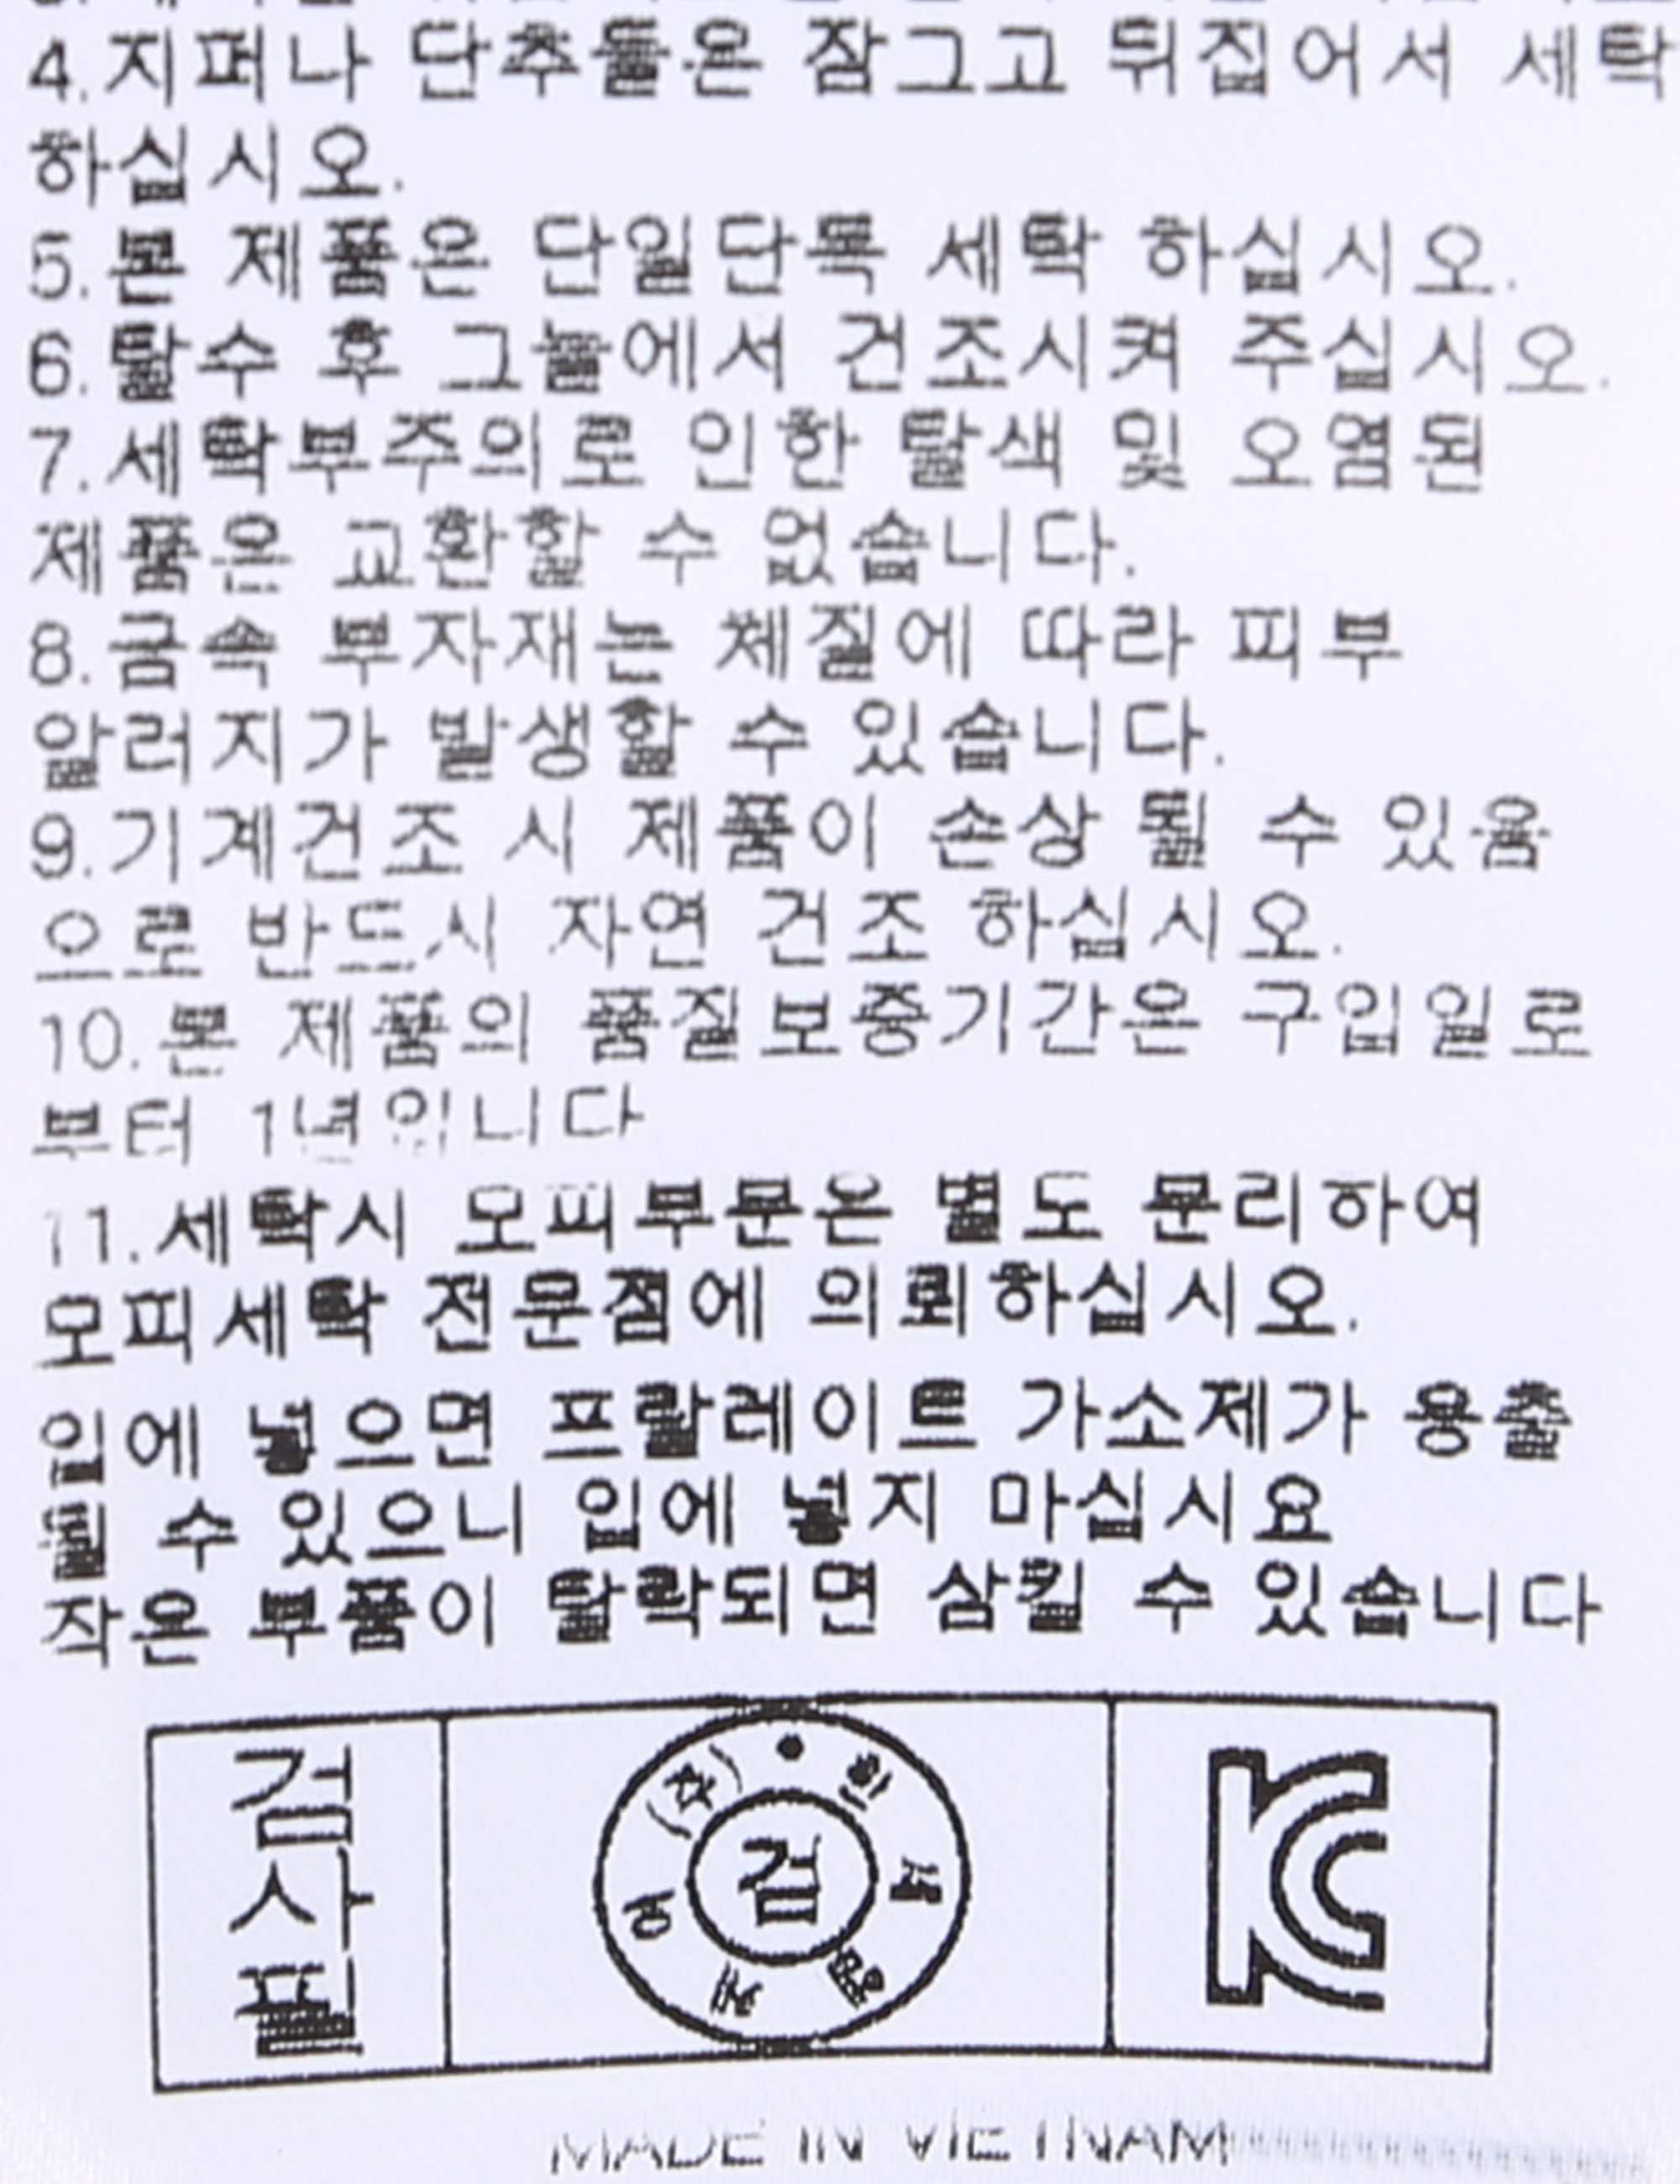 4.지퍼나 단추들은 잠그고 뒤집어서 세탁
하십시오.
5.본 제품은 단일단독 세탁 하십시오.
6.탈수 후 그늘에서 건조시켜 주십시오.
7.세탁부주의로 인한 탈색 및 오염된
제품은 교환할 수 없습니다.
8.금속 부자재는 체질에 따라 피부
알러지가 발생할 수 있습니다.
9.기계건조 시 제품이 손상 될 수 있음
으로 반드시 자연 건조 하십시오.
10.본 제품의 품질보증기간은 구입일로
부터 1년입니다
11.세탁시 모피부분은 별도 분리하여
모피세탁 전문점에 의뢰하십시오.
입에 넣으면 프탈레이트 가소제가 용출
될 수 있으니 입에 넣지 마십시요
작은 부품이 탈락되면 삼킬 수 있습니다
검사필
(주)
한세
검
KC
MADE IN VIETNAM